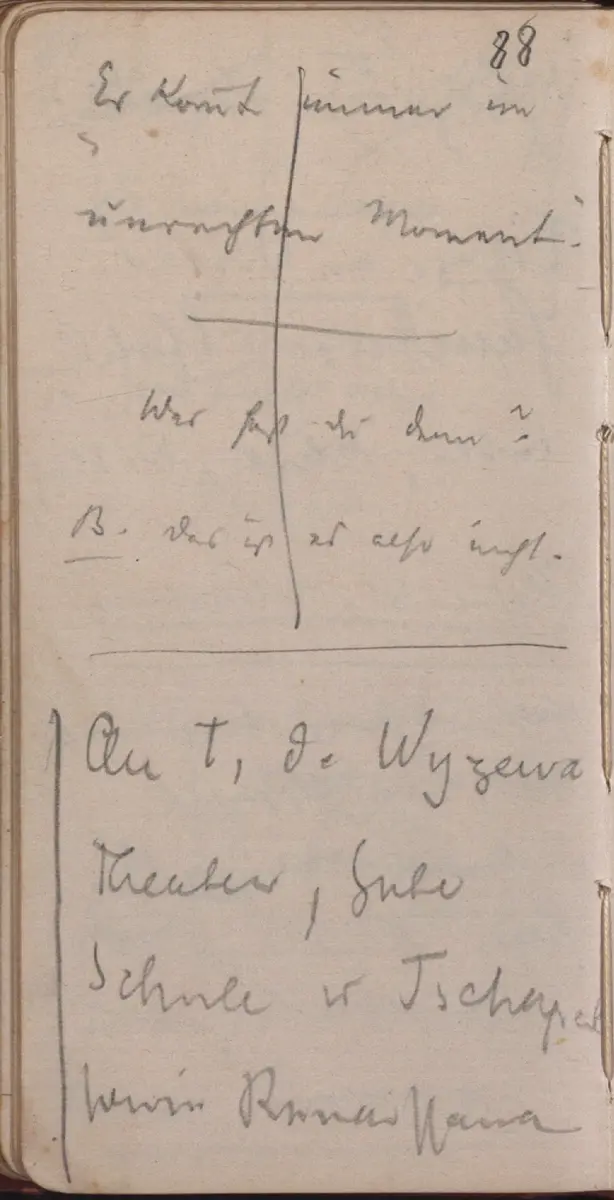 88
Er kom̅t immer im
unrechten Moment.
Was hast du denn?
B. das ist es also nicht.
An T, de Wyzewa
Theater, gute
Schule
sowie Renaissance